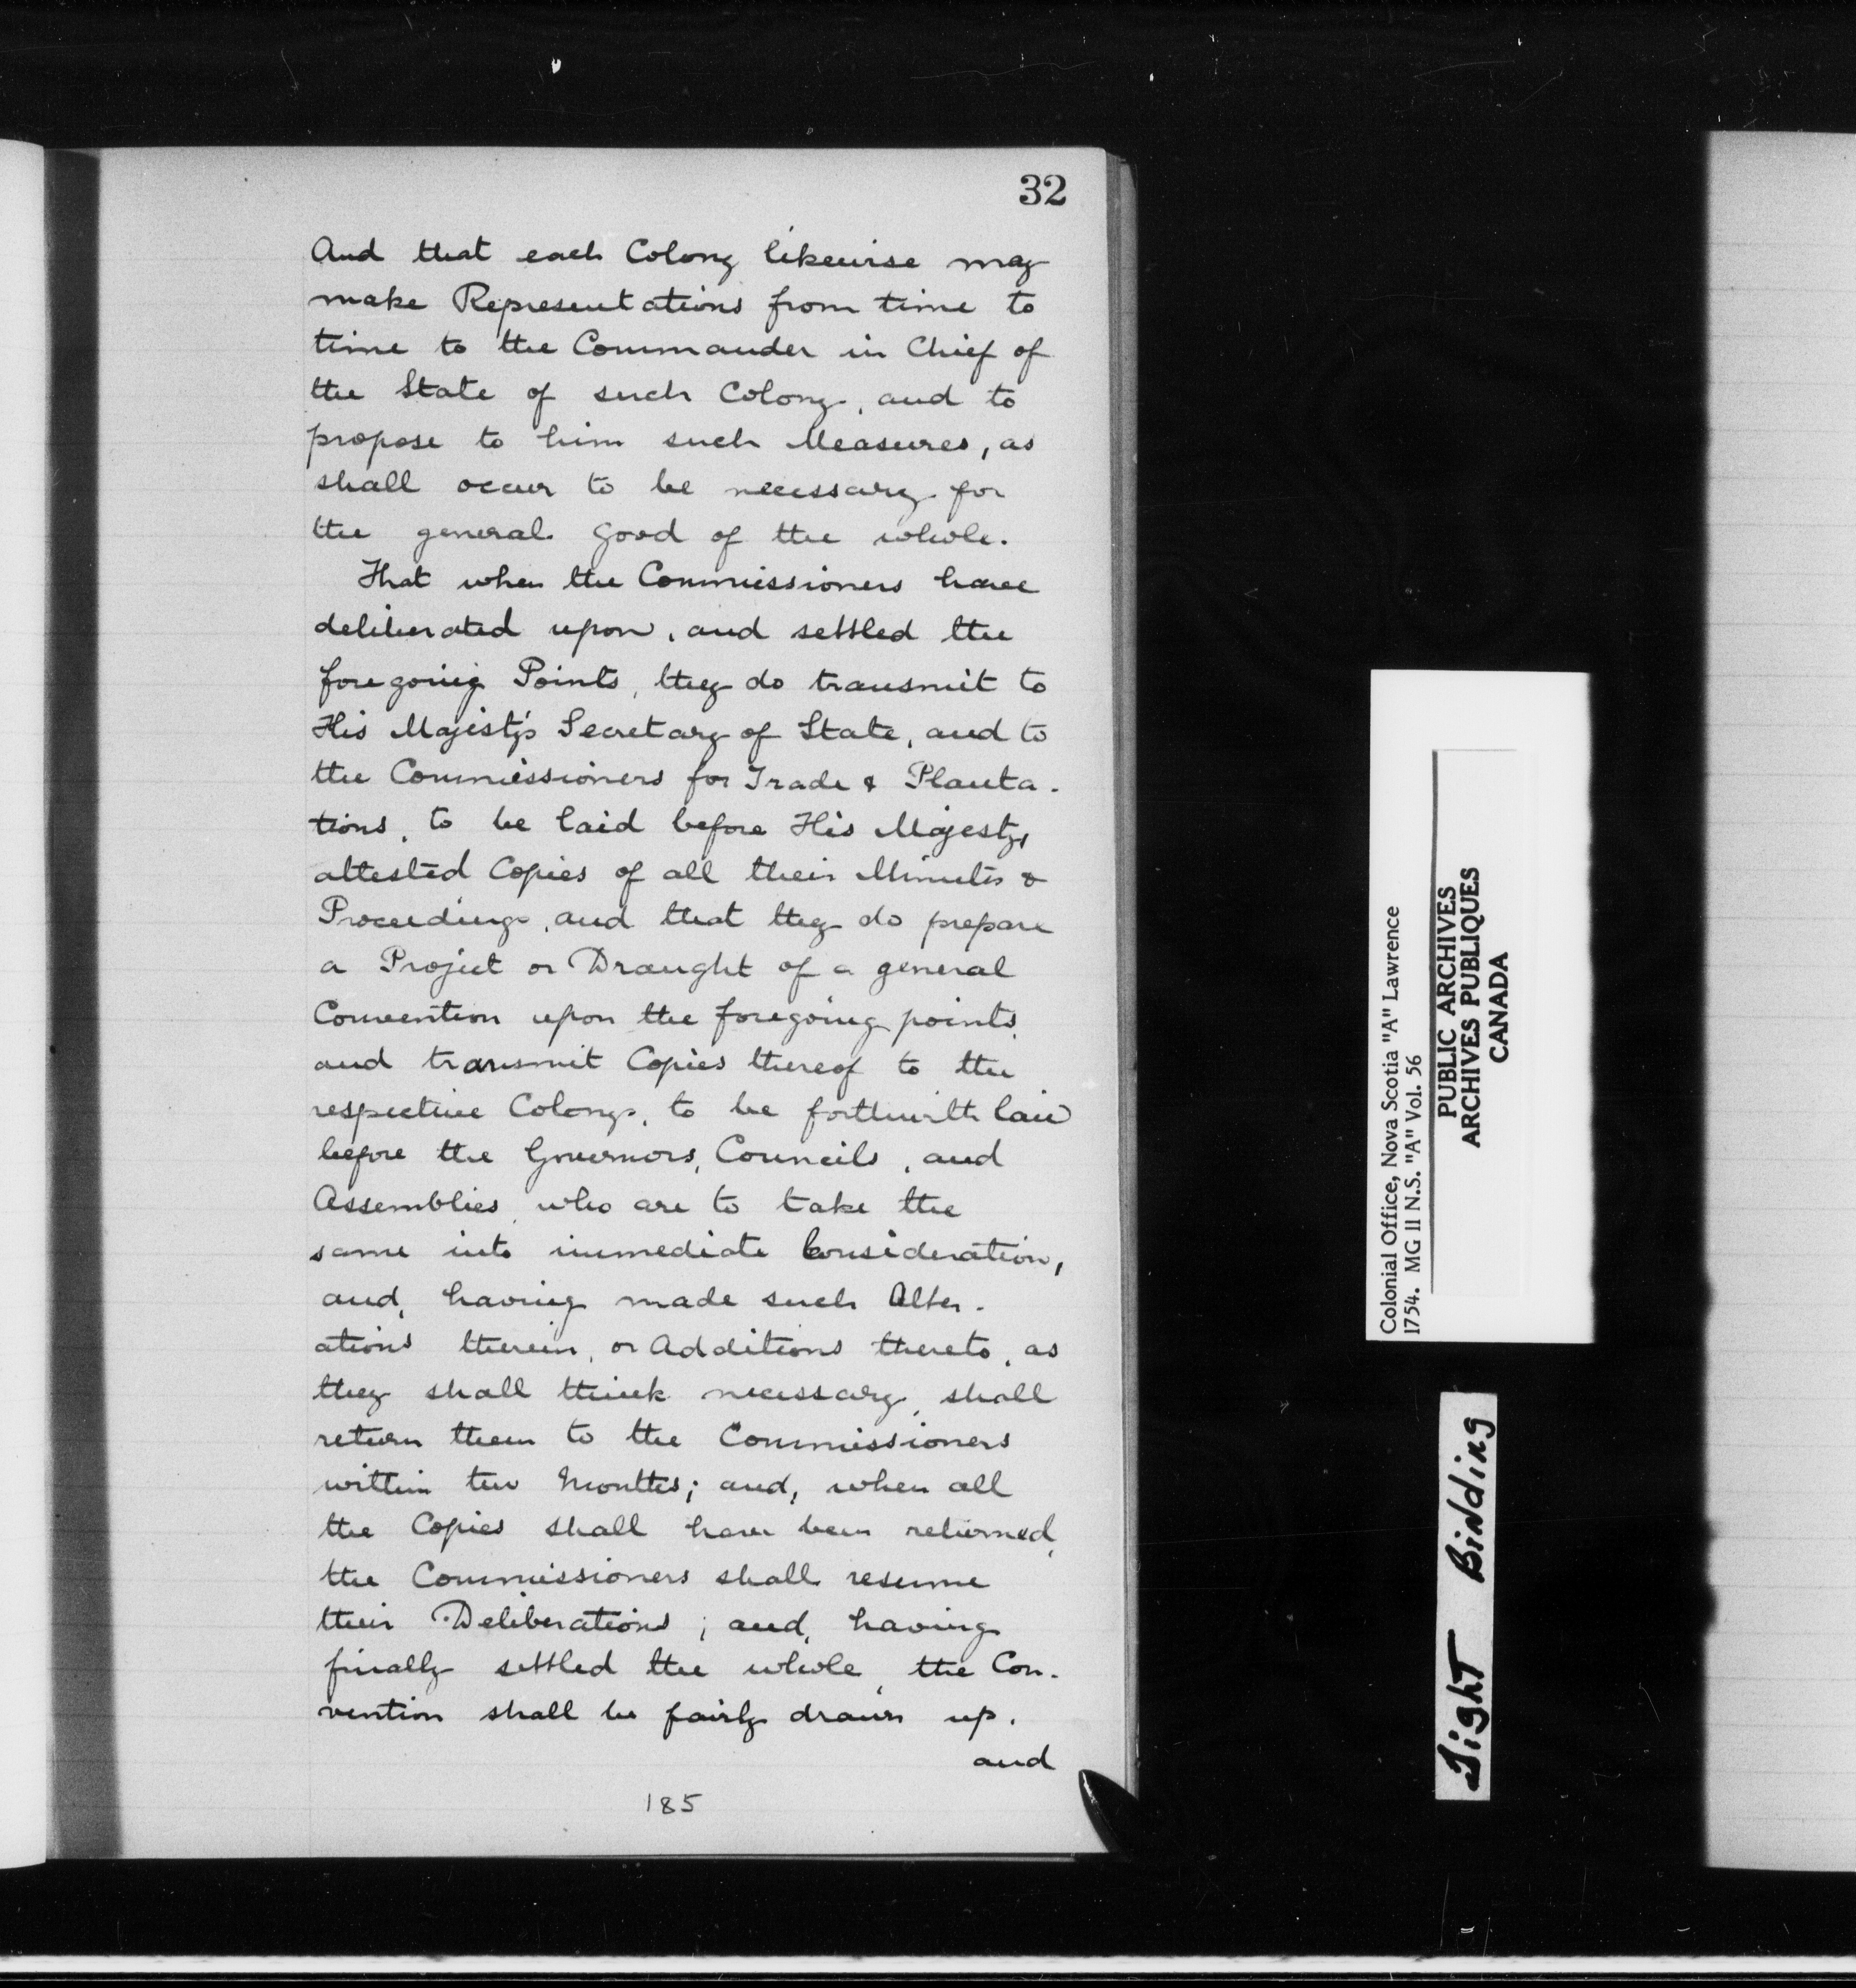 32
And that each Colony likewise may
make Representations from time to
time to the Commander in Chief of
the State of such Colony, and to
propose to him such Measures, as
shall occur to be necessary for
the general good of the whole.
That when the Commissioners have
deliberated upon, and settled the
foregoing Points, they do transmit to
His Majesty's Secretary of State, and to
the Commissioners for Trade & Planta-
tions, to be laid before His Majesty,
attested Copies of all their Minutes &
Proceedings, and that they do prepare
a Project or Draught of a general
Convention upon the foregoing points,
and transmit Copies thereof to the
respective Colonys, to be forthwith laid
before the Governors, Councils, and
Assemblies, who are to take the
same into immediate Consideration,
and, having made such Alter-
ations therein, or Additions thereto, as
they shall think necessary, shall
return them to the Commissioners
within two Months; and, when all
the Copies shall have been returned,
the Commissioners shall resume
their Deliberations; and, having
finally settled the whole, the Con-
vention shall be fairly drawn up.
and
185
Colonial Office, Nova Scotia "A" Lawrence
1754. MG II N.S. "A" Vol. 56
PUBLIC ARCHIVES
ARCHIVES PUBLIQUES
CANADA
Tight Binding